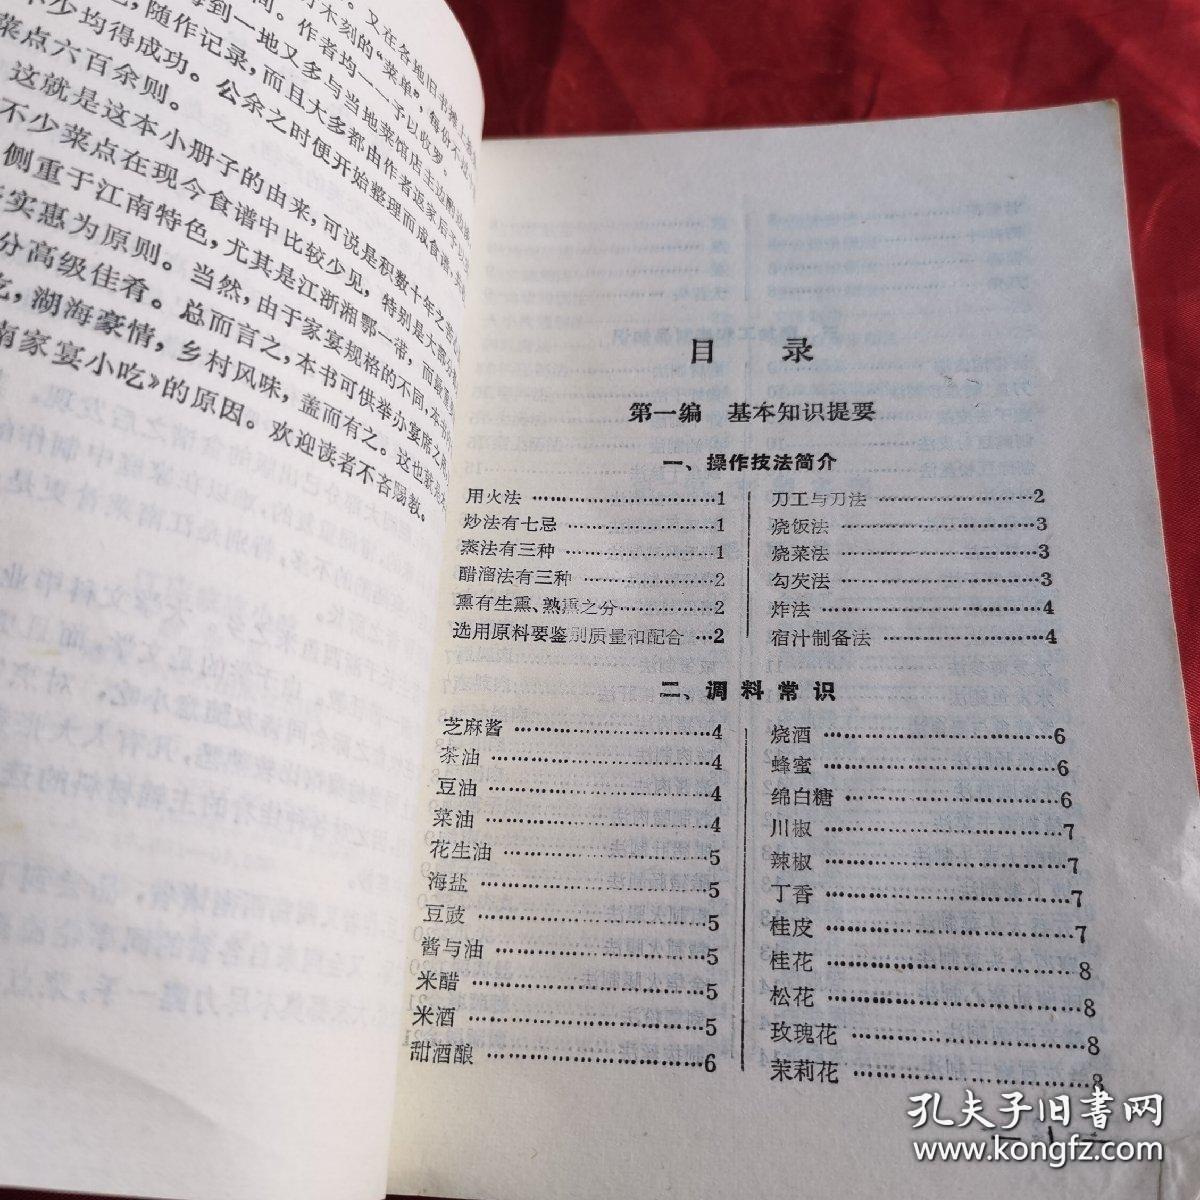 又在各地旧书摊上
木刻的“菜单”，每份不
间。作者均一一予以收罗。
每到一地又多与当地菜馆店主
随作记录，而且大多都由作者返家后予以
不少均得成功。公余之时便开始整理而成食谱，
菜点六百余则。
这就是这本小册子的由来，可说是积数十年之
不少菜点在现今食谱中比较少见，特别是大部分
侧重于江南特色，尤其是江浙湘鄂一带，而
实惠为原则。当然，由于家宴规格的不同，
分高级佳肴。总而言之，本书可供举办宴席之
吃，湖海豪情，乡村风味，盖而有之。这也就是
南家宴小吃》的原因。欢迎读者不吝赐教。
目 录
第一编 基本知识提要
一、操作技法简介
用火法 ……………1
炒法有七忌 ……………1
蒸法有三种 ……………1
醋溜法有三种 ……………2
熏有生熏、熟熏之分 ……………2
选用原料要鉴别质量和配合 …2
刀工与刀法 ……………2
烧饭法 ……………3
烧菜法 ……………3
勾芡法 ……………3
炸法 ……………4
宿汁制备法 ……………4
二、调料常识
芝麻酱 ……………4
茶油 ……………4
豆油 ……………4
菜油 ……………4
花生油 ……………5
海盐 ……………5
豆豉 ……………5
酱与油 ……………5
米醋 ……………5
米酒 ……………5
甜酒酿 ……………6
烧酒 ……………6
蜂蜜 ……………6
绵白糖 ……………6
川椒 ……………7
辣椒 ……………7
丁香 ……………7
桂皮 ……………7
桂花 ……………8
松花 ……………8
玫瑰花 ……………8
茉莉花 ……………8
— 1 —
孔夫子旧书网
www.kongfz.com